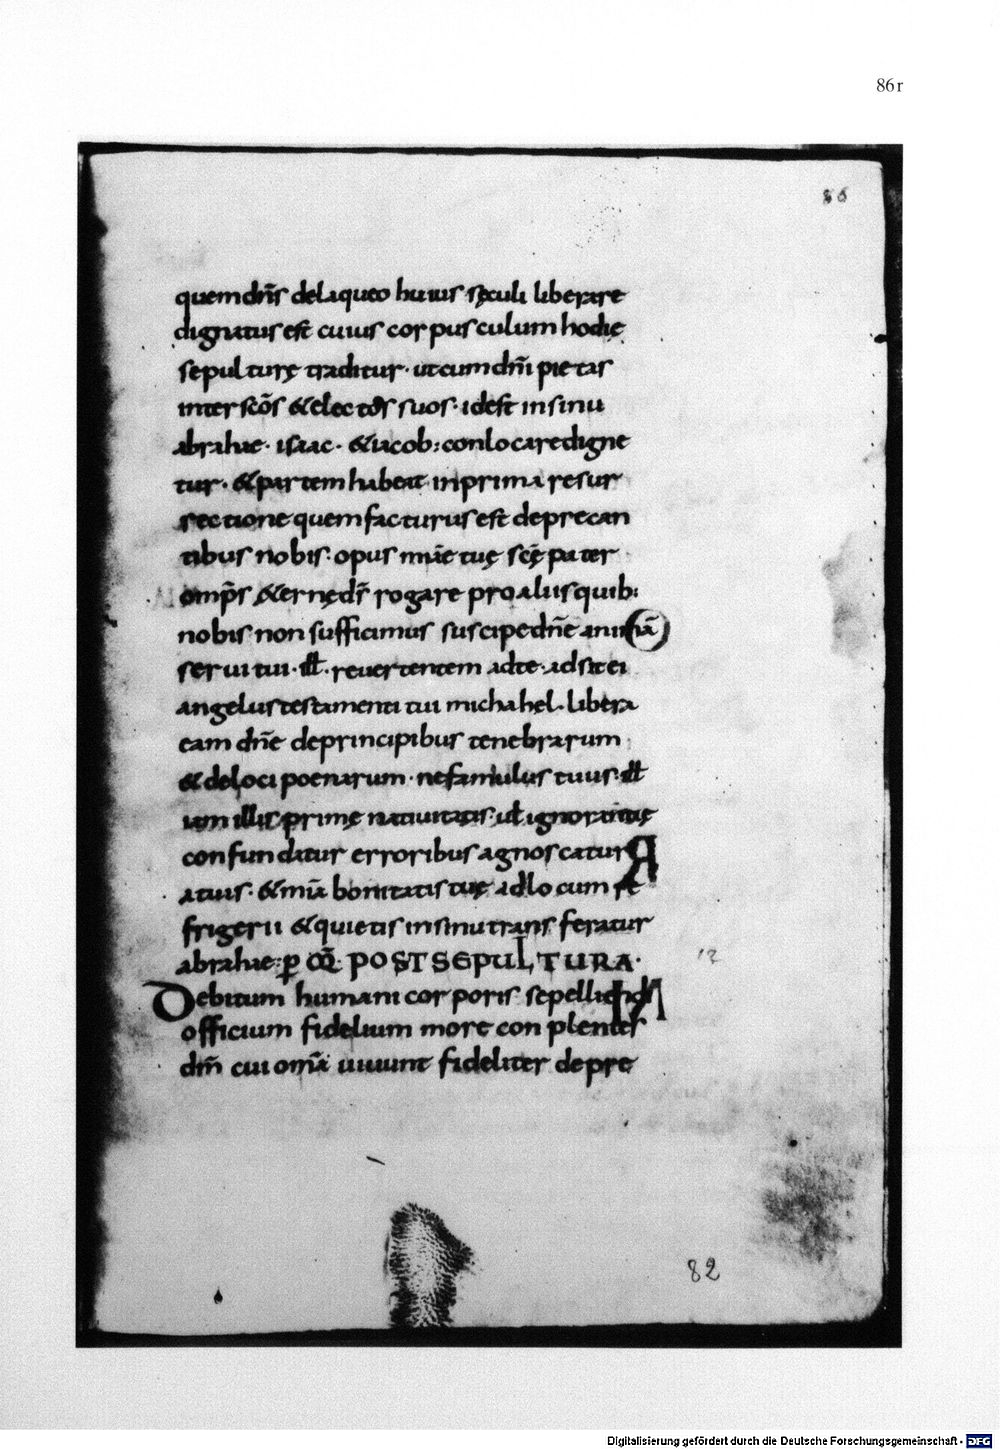 86r
86
quem dn̄s delaqueo huius sęculi liberare
dignatus est cuius corpusculum hodię
sepulturę traditur· ut cum dn̄i pietas
inter sc̄os & electos suos· idest insinu
abrahae· isaac· & iacob: conlocare digne
tur· & partem habeat inprima resur
rectione quem facturus est deprecan
tibus nobis· opus
pater
omp̄s
rogare proaliis quib:
nobis non sufficimus suscipe dn̄e animā
serui tui· ill̄· reuertentem adte· adsit ei
angelus testamenti tui michahel· libera
eam dn̄e deprincipibus tenebrarum
& deloci poenarum· nefamulus tuus· ill̄
iam illis primę natiuitatis· ul̄ ignorantię
confundatur erroribus agnoscatur
atuis· & mīa bonitatis tuę adlocum re
frigerii & quietis insinu transferatur
abrahae: p
POST SEPULTURA·
Debitum humani corporis sepelliendi
officium fidelium more conplentes
dm̄ cui omīa uiuunt fideliter depre
12
82
Digitalisierung gefördert durch die Deutsche Forschungsgemeinschaft - DFG